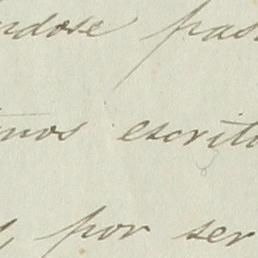 ndose pas
mos escrito
, por ser